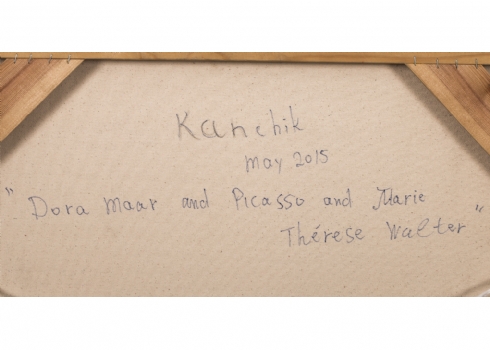 Kanchik
may 2015
" Dora Maar and Picasso and Marie
Thérese Walter "